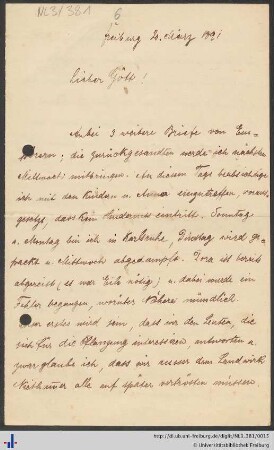 NL3/381
6
Freiburg 20. März 1891
Lieber Gött!
Anbei 3 weitere Briefe von
; die zurückgesandten werde ich nächsten
Mittwoch mitbringen. An diesem Tage beabsichtige
ich mit den Kindern u. Anna einzutreffen, voraus-
gesetzt, dass kein Hindernis eintritt. Sonntag
u. Montag bin ich in Karlsruhe, Dinstag wird ge-
packt u. Mittwoch abgedampft. Dora ist bereits
abgereist, es war Eile nötig; u. dabei wurde ein
Fehler begangen, worüber Näheres mündlich.
Unser erstes wird sein, dass wir den Leuten, die
sich für die Pflanzung interessiren, antworten u.
zwar glaube ich, dass wir ausser dem Landwirt
alle auf später vertrösten müssen.
http://dl.ub.uni-freiburg.de/diglit/NL3_381/0015
© Universitätsbibliothek Freiburg